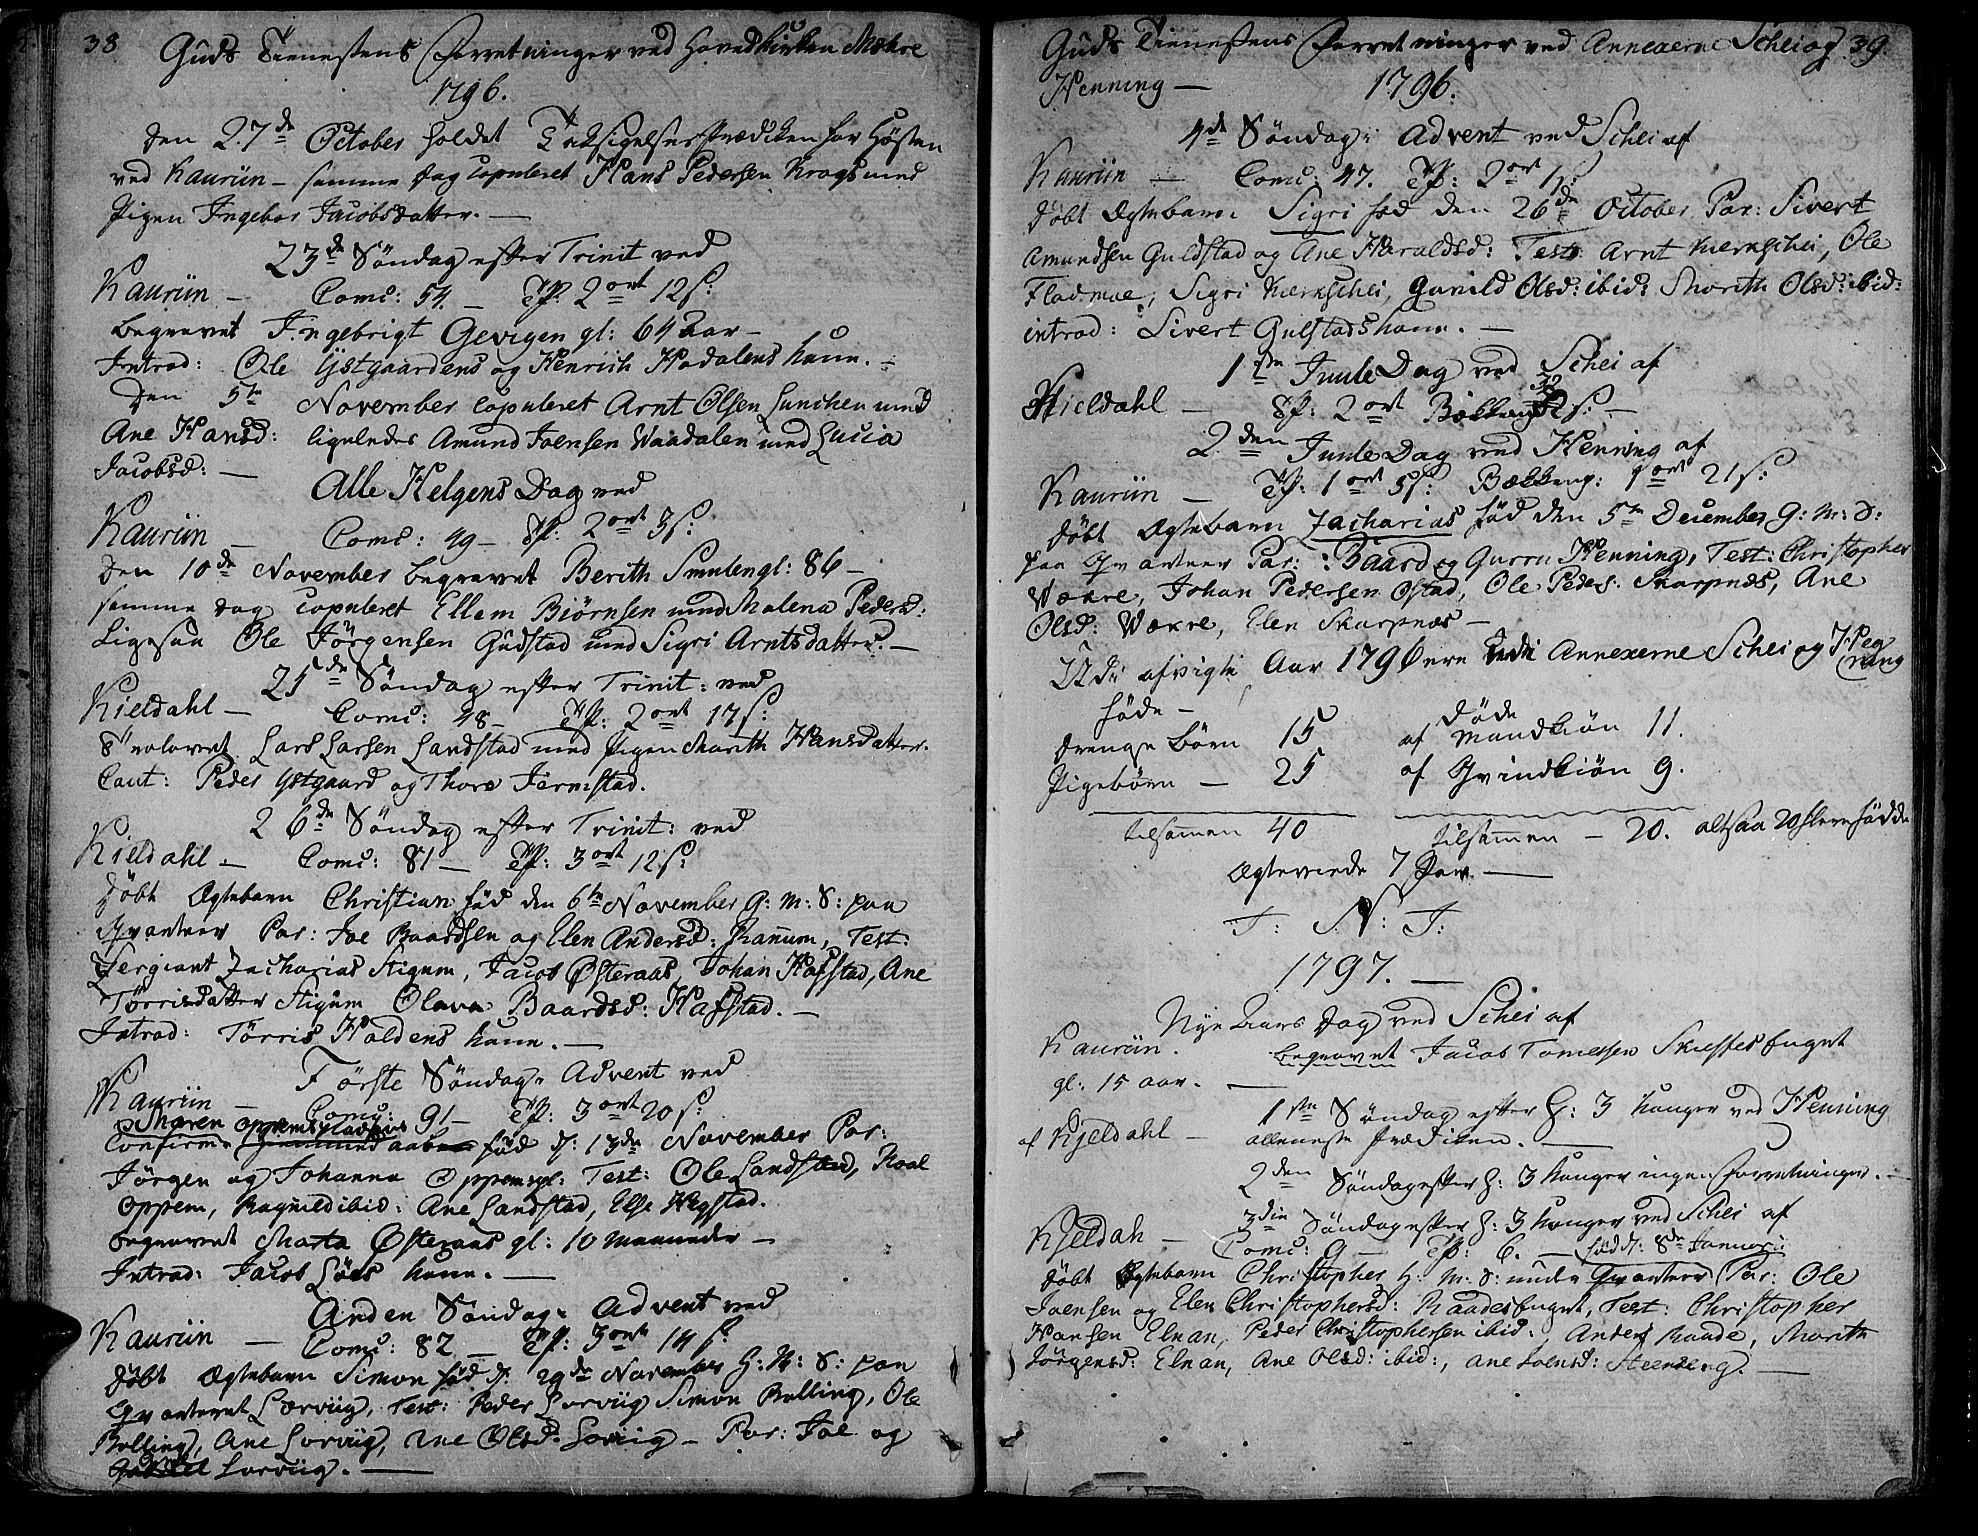 38 Guds Tienestens Forretninger ved Hovedkirken Mæhre
1796.
den 27de October holdet Taksigelses Prædiken for Høsten
ved Kauriin – samme dag copuleret Hans Pedersen Krogs med
Pigen Ingebor Jacobsdatter. –
23de Søndag efter Trinit ved
Kauriin – Comu: 54 – Tf: 2 ort 12 s:
begravet Ingebrigt Gevigen gl: 64 aar –
Introd: Ole Ystgaardens og Henrich Hadalens kone. –
den 5te November copuleret Arnt Olsen Lunchen med
Ane Hansd: ligeledes Amund Joensen Waadalen med Lucia
Jacobsd: –
Alle Helgens Dag ved
Kauriin – Comu: 49 – Tf: 2 ort 3 s:
den 10de November begravet Berith Smulengl: 86 –
samme dag copuleret Ellem Biørnsen med Malena Pedersd:
Ligesaa Ole Jørgensen Gudstad med Sigri Arntsdatter. –
25de Søndag efter Trinit: ved
Kieldahl – Comu: 48 – Tf: 2 ort 17 s:
Trolovet Lars Larsen Landstad med Pigen Marith Hansdatter.
Caut: Peder Ystgaard og Thore Jermstad.
26de Søndag efter Trinit: ved
Kieldahl – Comu: 81 – Tf: 3 ort 12 s:
døbt Ægtebarn Christian fød den 6te November G: M: D: paa
Qvarteer Par: Joe Baardsen og Elen Andersd: Ranum, Test:
Sergiant Zacharias Stigum, Jacob Østeraas, Johan Hafstad, Ane
Tørrisdatter Stigum Olava Baardsd: Hafstad. –
Introd: Tørris Holdens kone. –
Første Søndag i Advent ved
Kauriin – Comu: 91 – Tf: 3 ort 20 s:
Maren
Confirm: fød d: 13de November Par:
Jørgen og Johanna Oppemspl: Test: Ole Landstad, Roal
Oppem, Ragnild ibid: Ane Landstad, Else Hegstad.
begravet Marta Østeraas gl: 10 maaneder –
Introd: Jacob Løes kone. –
Anden Søndag i Advent ved
Kauriin – Comu: 82 – Tf: 3 ort 14 s:
døbt Ægtebarn Simon fød d: 29de November G: M: D: paa
Qvarteret Lorviig, Test: Peder Lorviig Simon Bolling, Ole
Bolling, Ane Lorviig, Ane Olsd: Lorviig – Par: Joe og
Lorviig. –
Guds Tienestens Forretninger ved Annexerne Schei og 39.
Henning – 1796.
4de Søndag i Advent ved Schei af
Kauriin – Comu: 47. Tf: 2 ort 1 s:
døbt Ægtebarn Sigri fød den 26de October Par: Sivert
Amundsen Guldstad og Ane Haraldsd: Test: Arnt Kierkschei, Ole
Fladmoe, Sigri Kierkschei, Gunild Olsd: ibid: Marith Olsd: ibid:
introd: Sivert Gulstads kone. –
1ste Juule Dag ved Schei af
Kieldahl – Tf: 2 ort Bækkeng 32 s: –
2den Juule Dag ved Henning af
Kauriin – Tf: 1 ort 5 s: Bækkeng: 1 ort 21 s:
døbt Ægtebarn Zacharias fød den 5te December G: M: D:
paa Qvarteer Par: Baard og Gurru Henning, Test: Christopher
Wekre, Johan Pedersen Østad, Ole Peders: Skarpnæs, Ane
Olsd: Wekre, Elen Skarpnæs –
I det afvigte Aar 1796 ere i Annexerne Schei og Hen
ning
fødde – døde
drenge børn 15 af mandkiøn 11.
Pigebørn – 25 af Qvindkiøn 9.
tilsamen 40 tilsamen – 20. altsaa 20 flere fødde
Ægteviede 7 Par –
I: N: J:
1797. –
Nye Aars Dag ved Schei af
Kauriin. begravet Jacob Tomessen Skieftesluget
gl: 15 aar. –
1ste Søndag efter H: 3 Konger ved Henning
af Kjeldahl – alleneste Prædiken. –
2den Søndag efter H: 3 Konger ingen forretninger. –
3die Søndag efter H: 3 Konger ved Schei af
Kjeldah – Comu: 9 – Tf: 6. – fød d: 8de Januari:
døbt Ægtebarn Christopher H: M: D: under Qvarteer Par: Ole
Joensen og Elen Christophersd: Raadesluget, Test: Christopher
Hansen Elnan, Peder Christophersen ibid:, Anders Raade, Marith
Jørgensd: Elnan, Ane Olsd: ibid:, ane Joensd: Steenberg. –